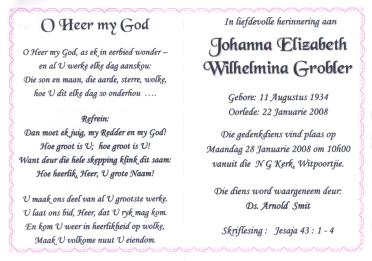 O Heer my God
O Heer my God, as ek in eerbied wonder –
en al U werke elke dag aanskou:
Die son en maan, die aarde, sterre, wolke,
hoe U dit elke dag so onderhou ....
Refrein:
Dan moet ek juig, my Redder en my God!
Hoe groot is U; hoe groot is U!
Want deur die hele skepping klink dit saam:
Hoe heerlik, Heer, U grote Naam!
U maak ons deel van al U grootste werke.
U laat ons bid, Heer, dat U ryk mag kom.
En kom U weer in heerlikheid op wolke,
Maak U volkome nuut U eiendom.
In liefdevolle herinnering aan
Johanna Elizabeth
Wilhelmina Grobler
Gebore: 11 Augustus 1934
Oorlede: 22 Januarie 2008
Die gedenkdiens vind plaas op
Maandag 28 Januarie 2008 om 10h00
vanuit die N G Kerk, Witpoortjie.
Die diens word waargeneem deur:
Ds. Arnold Smit
Skriflesing : Jesaja 43 : 1 - 4